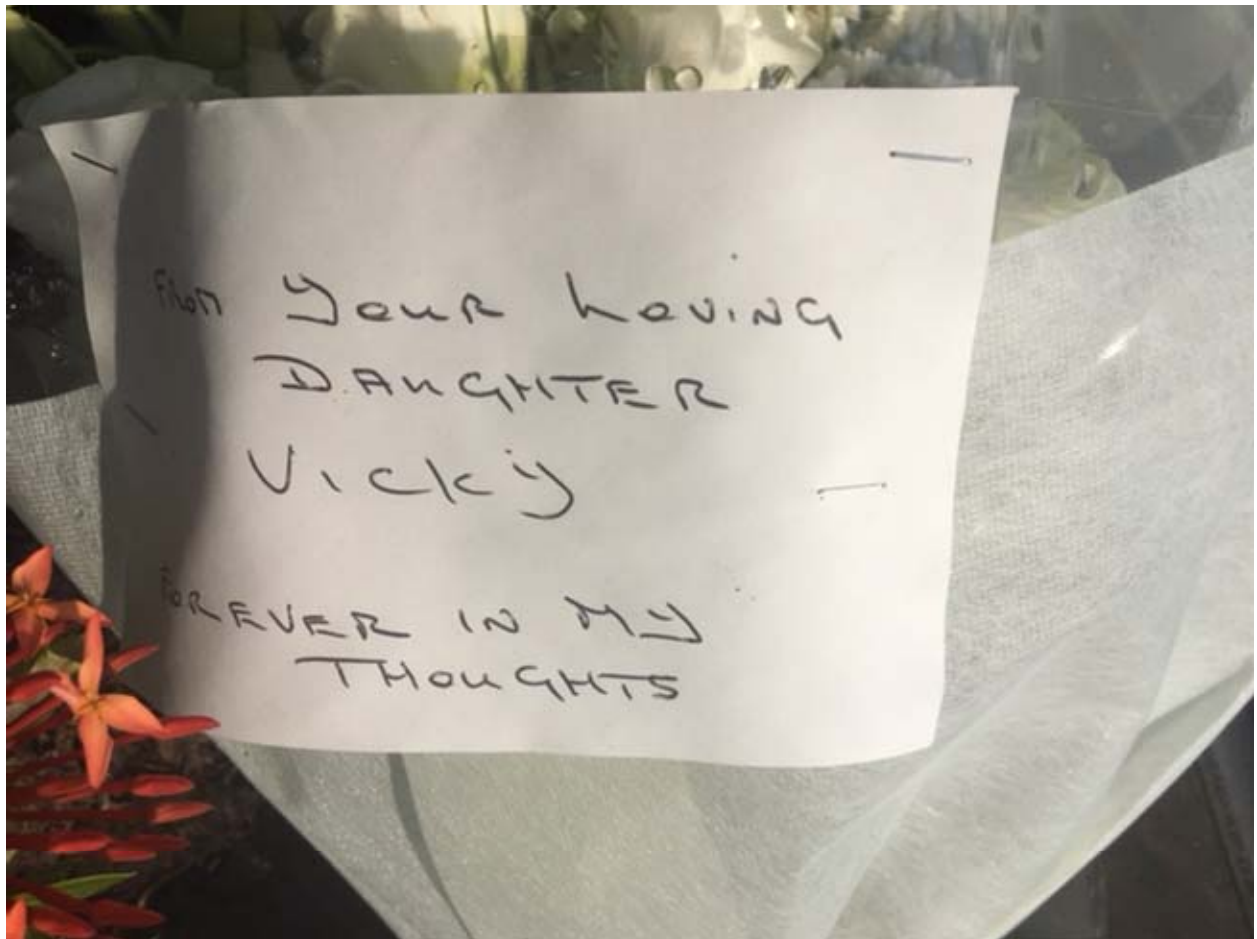 From Your Loving
DAUGHTER
Vicky
FOREVER IN MY
THOUGHTS